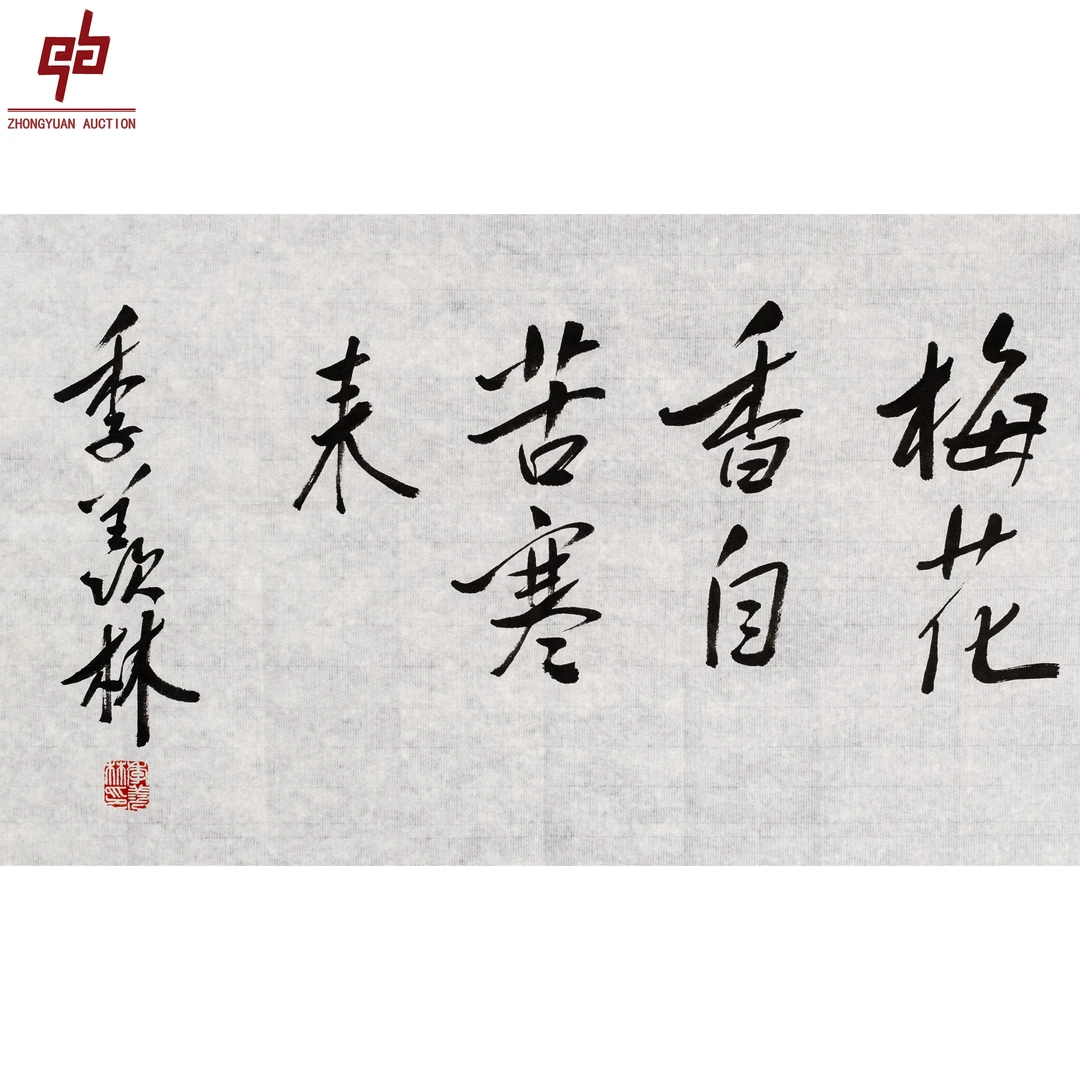 ZHONGYUAN AUCTION
梅花
香自
苦寒
来
季羡林
季羡林印